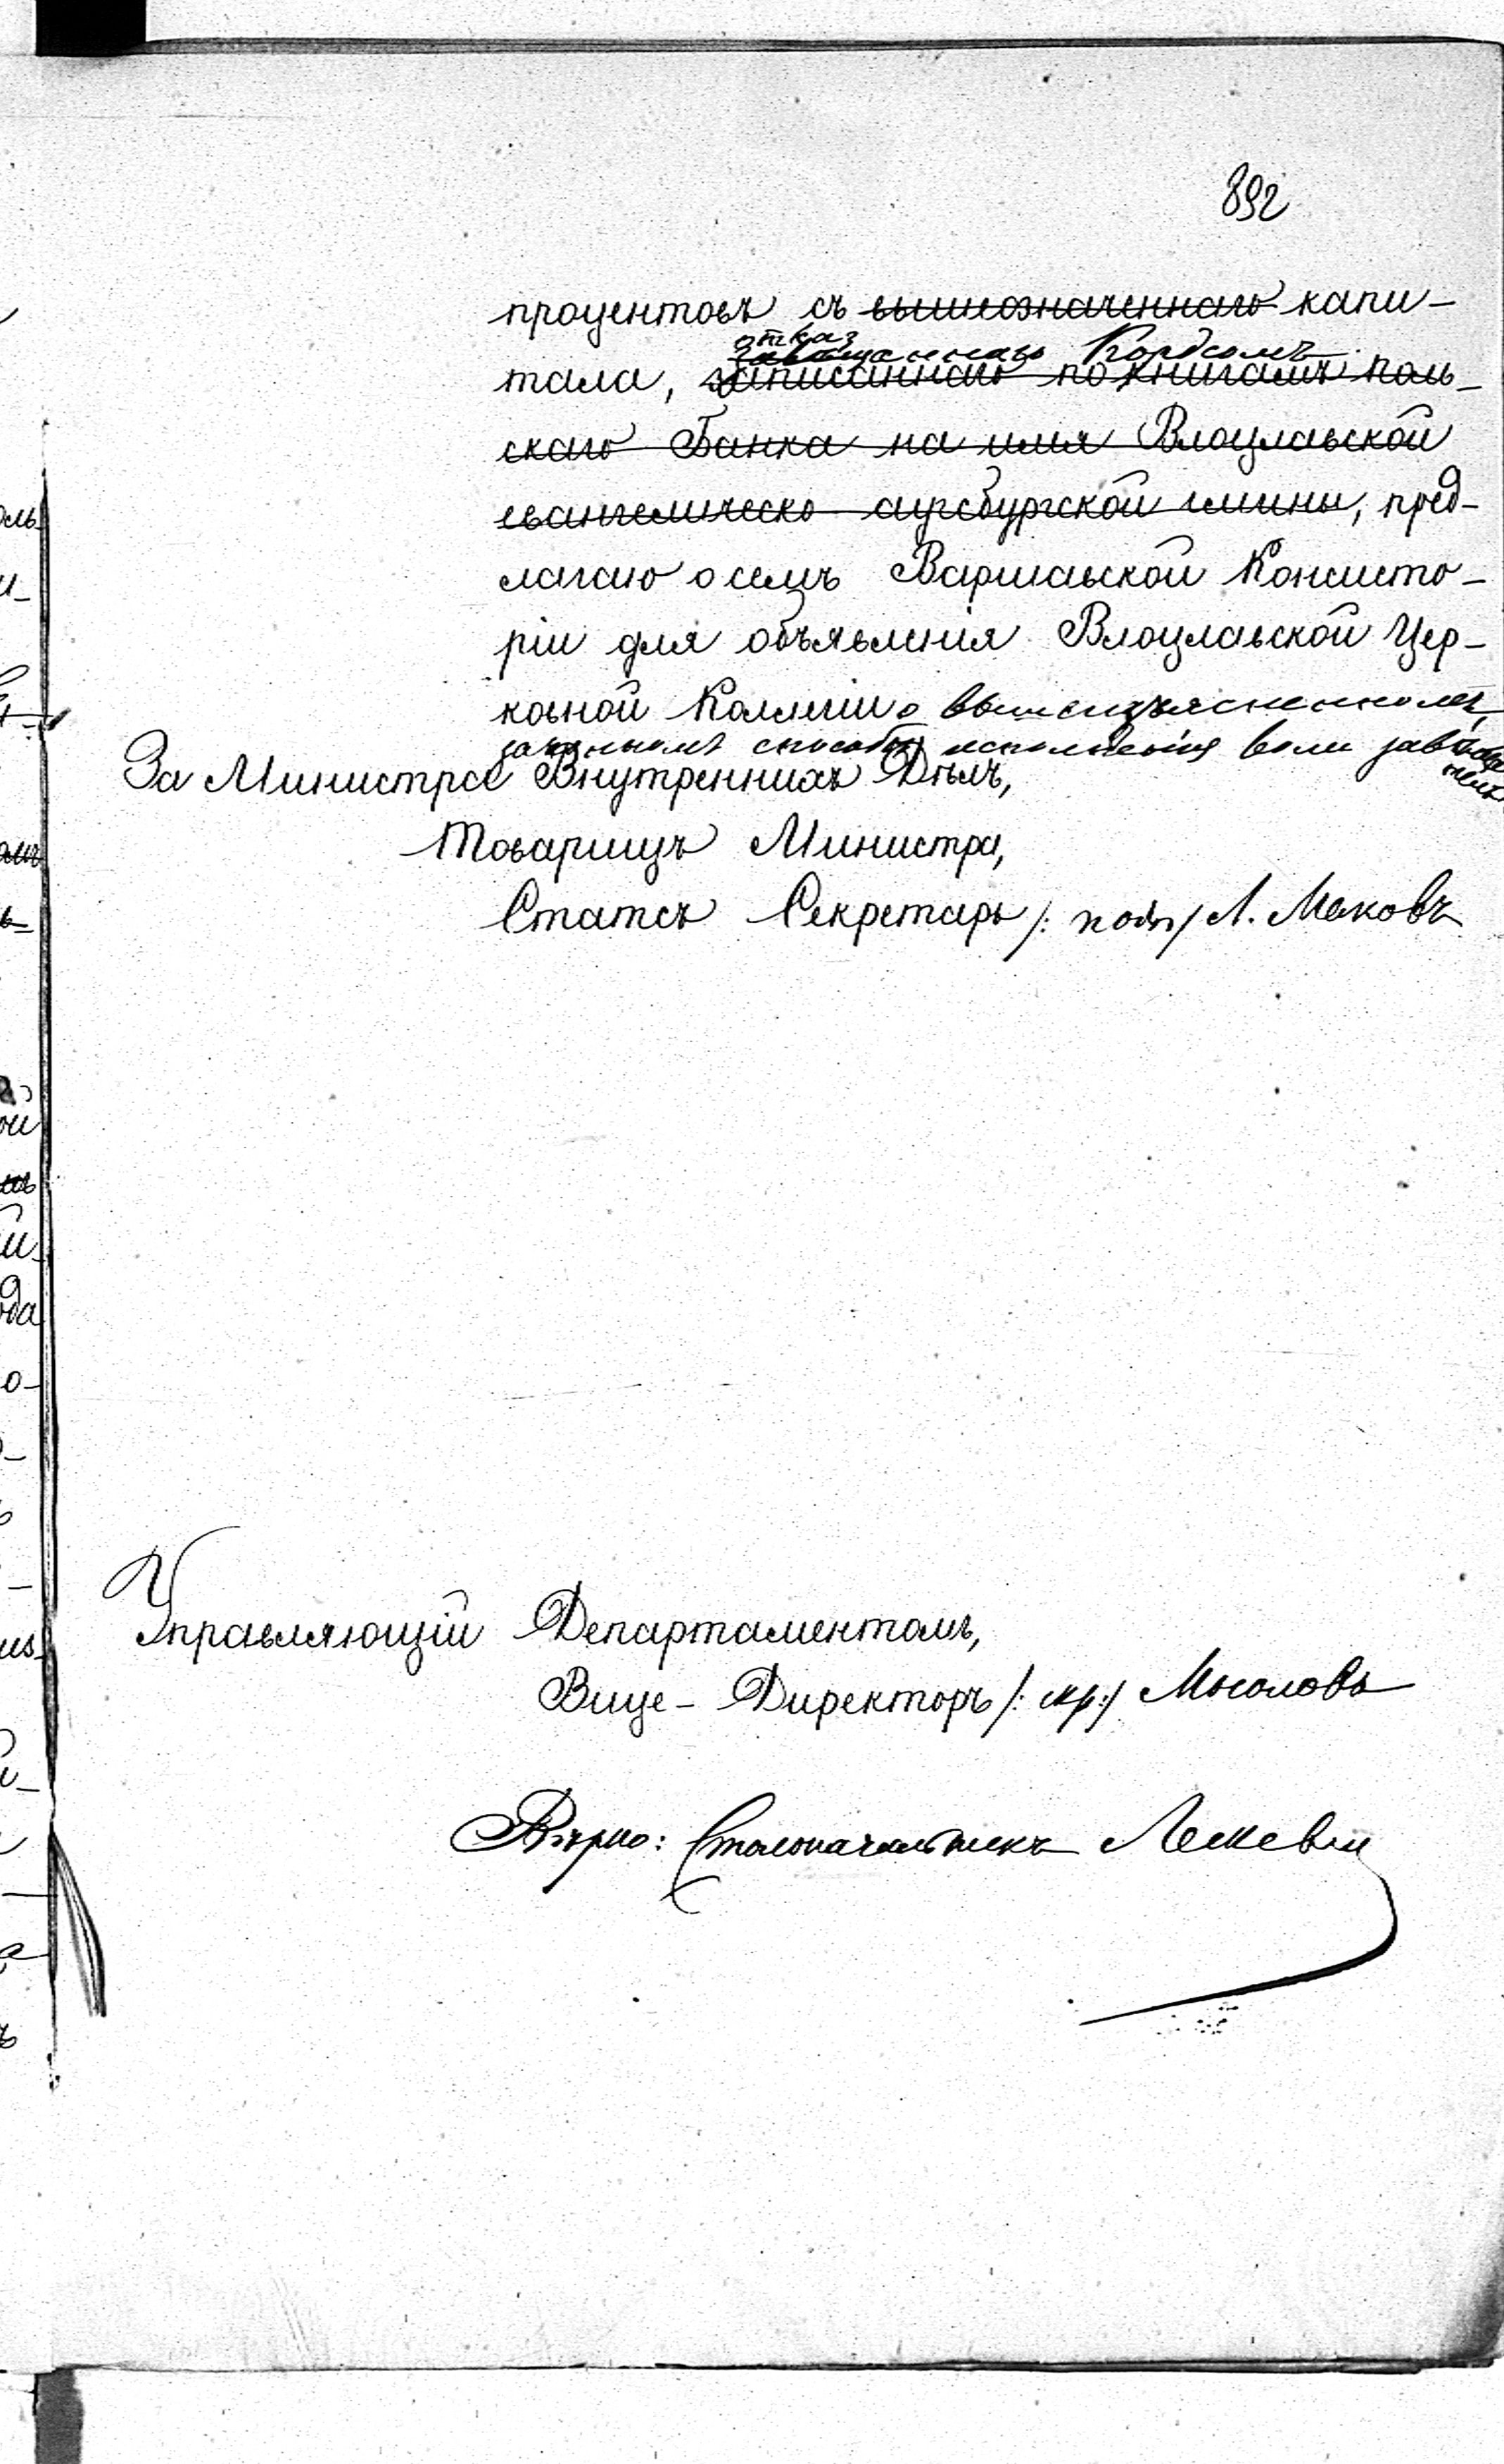 892
процентовъ съ вышеозначеннаго капи-
отказ
завѣщаннаго Кордсомъ
тала, записаннаго по книгамъ поль-
скаго Банка на имя Влоцлавской
евангелическо аугсбургской гмины, пред-
лагаю о семъ Варшавской Консисто-
ріи для объявленія Влоцлавской Цер-
ковной Коллегіи о вышеизъясненномъ,
законномъ способѣ исполненія воли завѣща
За Министра Внутреннихъ Дѣлъ,
Товарищъ Министра,
Статсъ Секретарь /: подп / Л. Маковъ
Управляющій Департаментомъ,
Вице-Директоръ /: скр :/ Мосоловъ
Вѣрно: Столоначальникъ